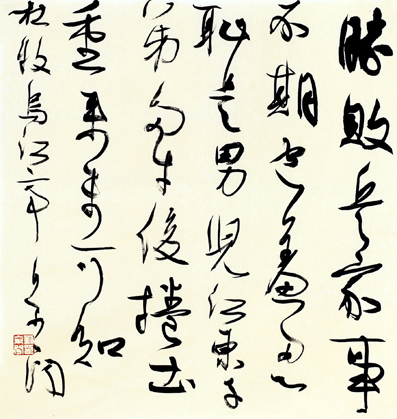 勝敗兵家事
不期包羞忍
耻是男兒江東子
弟多才俊捲土
重来未可知
杜牧烏江亭